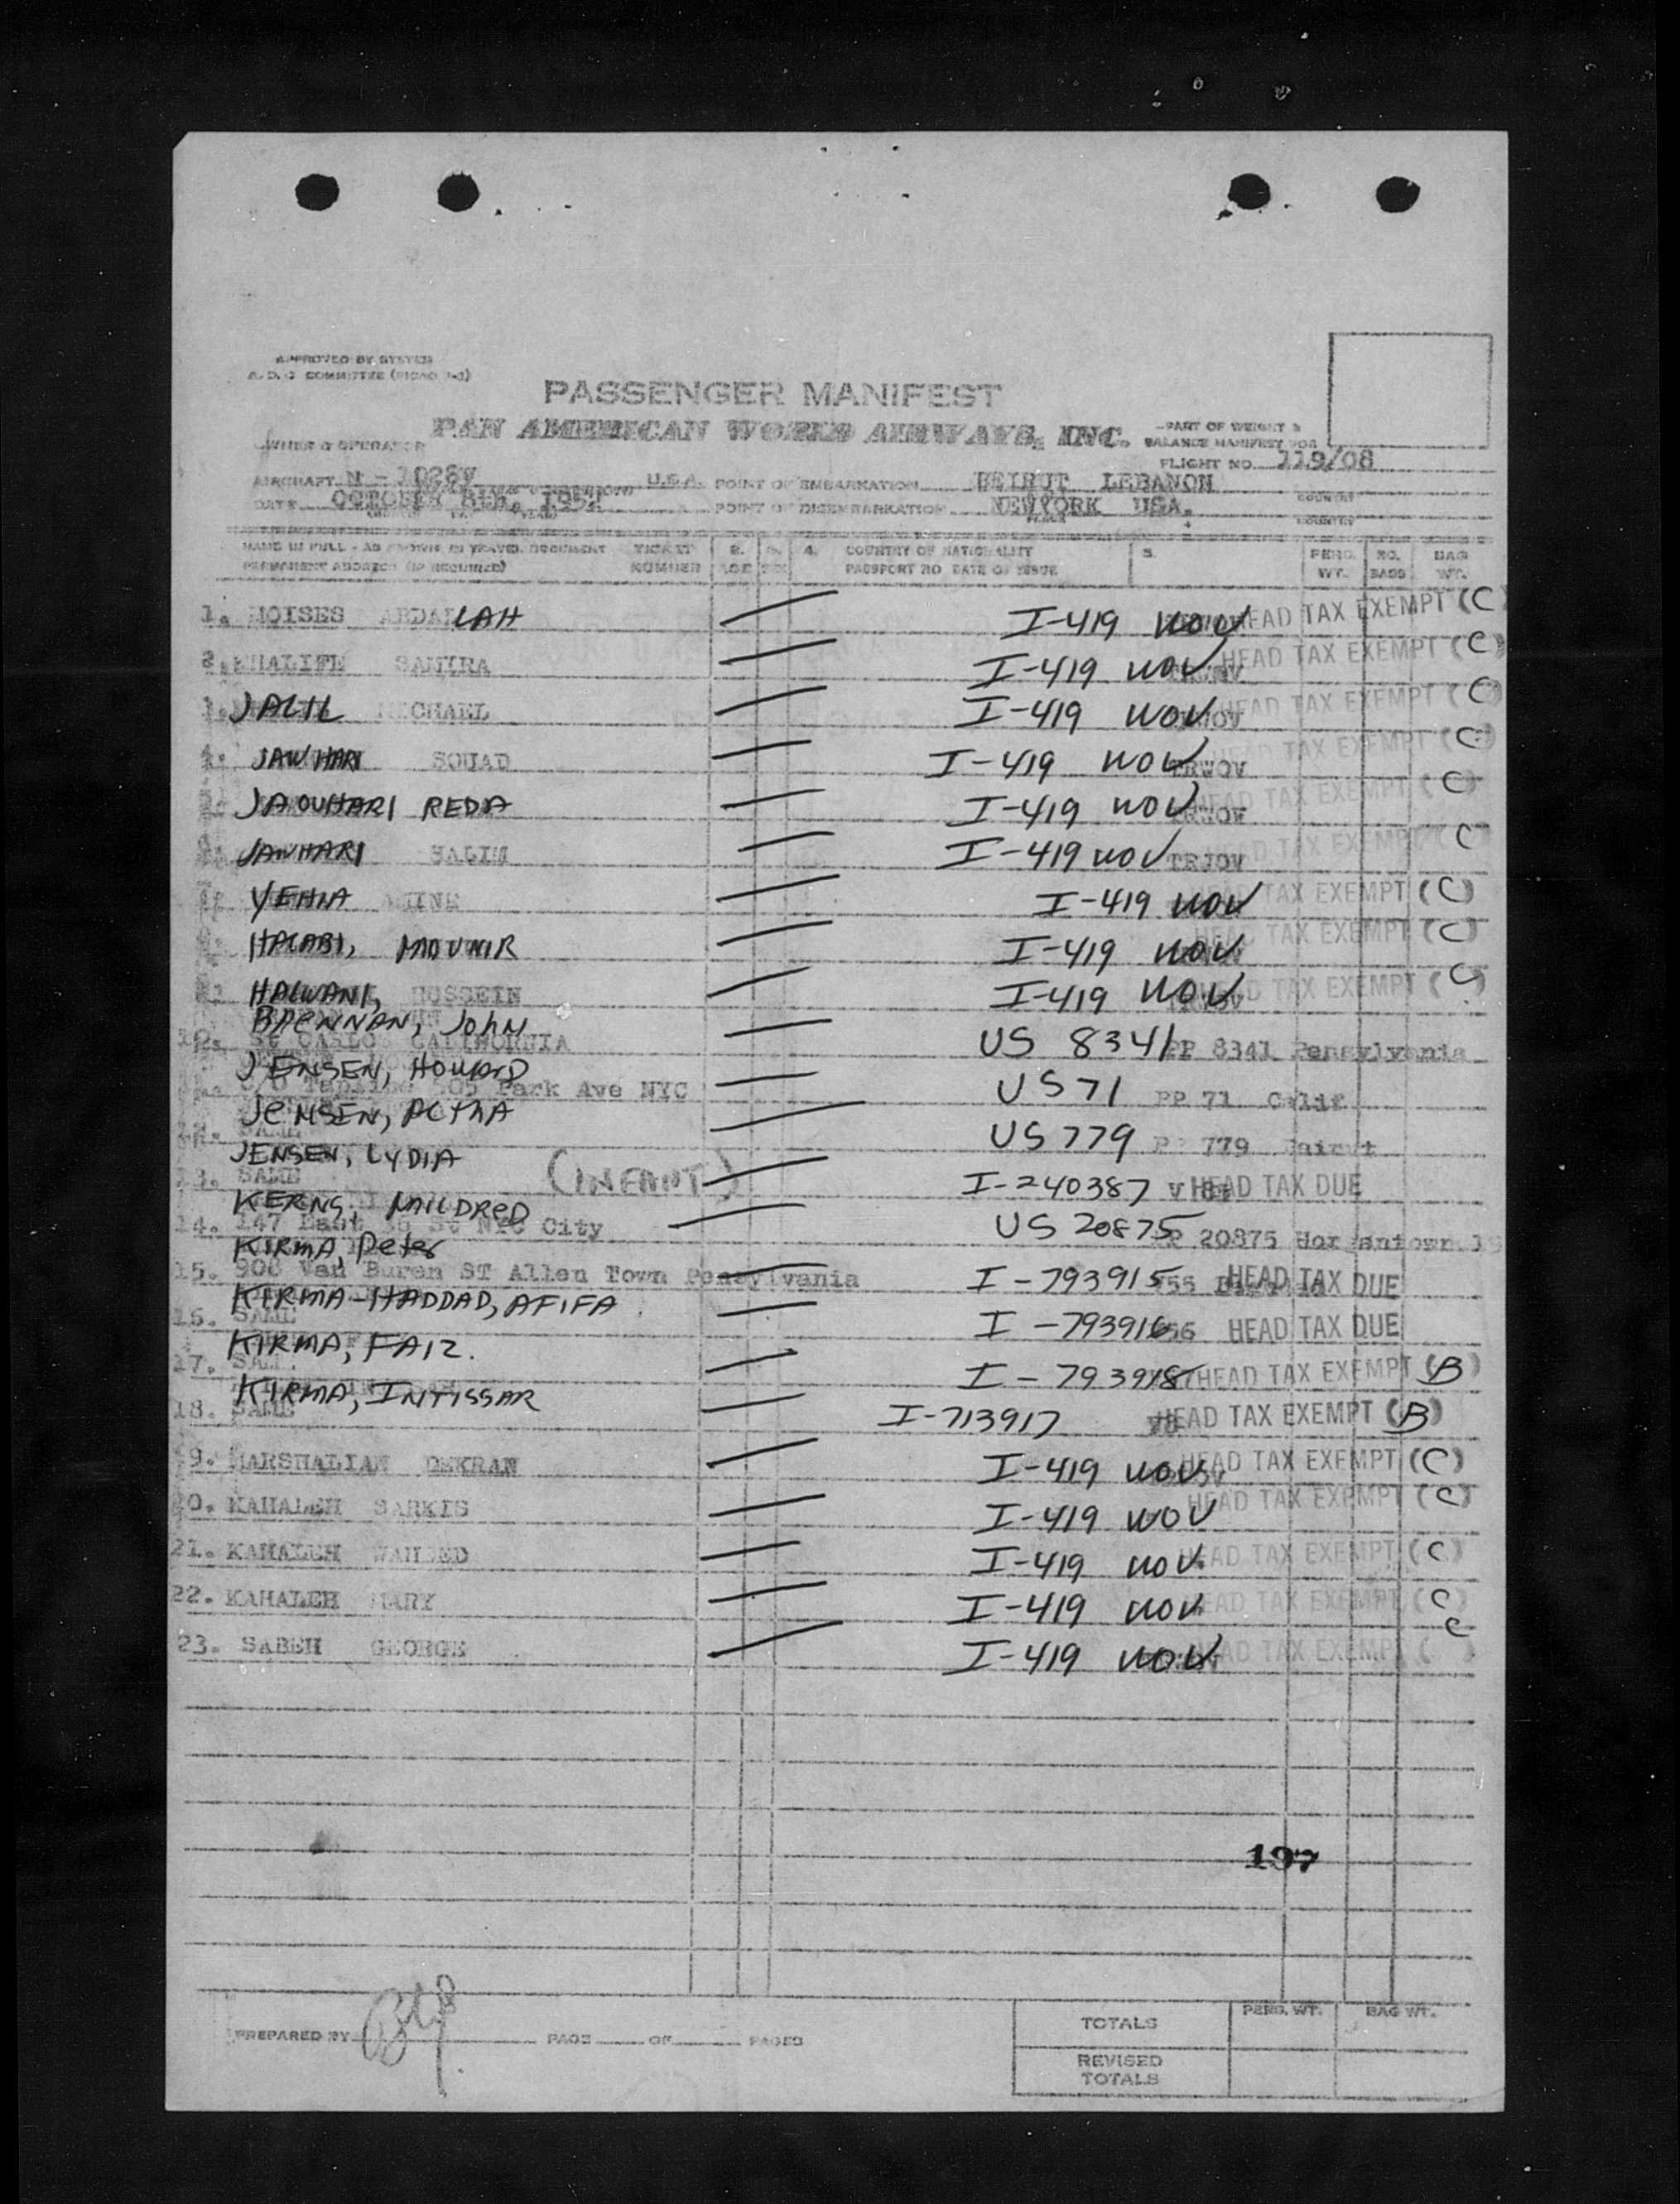 APPROVED BY SYSTEM
COMMITTEE
PASSENGER MANIFEST
PAN AMERICAN WORLD AIRWAYS, INC.
PART OF WEIGHT &
BALANCE MANIFEST FOR
OWNER & OPERATOR
FLIGHT NO. 119/08
AIRCRAFT N - 1028V U.S.A. POINT OF EMBARKATION BEIRUT LEBANON
COUNTRY
DATE OCTOBER POINT OF DISEMBARKATION NEWYORK USA.
PLACE COUNTRY
NAME IN FULL - AS SHOWN IN TRAVEL DOCUMENT TICKET 2. 3. 4. COUNTRY OF NATIONALITY 5. PERS. NO. BAG
PERMANENT ADDRESS (IF REQUIRED) NUMBER AGE SEX PASSPORT NO DATE OF ISSUE WT. BAGS WT.
1. MOISES ABDALLAH I-419 WOV HEAD TAX EXEMPT (C)
2. KHALIFE SAMIRA I-419 WOV HEAD TAX EXEMPT (C)
3. JALIL MICHAEL I-419 WOV HEAD TAX EXEMPT (C)
4. JAWHARI SOUAD I-419 WOV TRWOV HEAD TAX EXEMPT (C)
5. JAOUHARI REDA I-419 WOV TRWOV HEAD TAX EXEMPT (C)
JAWHARI SALIM I-419 WOV TRWOV HEAD TAX EXEMPT C
YEHIA AMINE I-419 WOV HEAD TAX EXEMPT (C)
HALABI, MOUNIR I-419 WOV HEAD TAX EXEMPT (C)
HALWANI, HUSSEIN I-419 WOV HEAD TAX EXEMPT (C)
BRENNAN, JOHN
10. St CARLOS CALIFORNIA US 8341 PP 8341 Pensylvania
JENSEN, HOWARD
Park Ave NYC US 71 PP 71 Calif
JENSEN, ALTHA
12. SAME US 779 PP 779 Beirut
JENSEN, LYDIA
13. SAME (INFANT) I-240387 HEAD TAX DUE
KERNS, MILDRED
14. 147 East St NYC City US 20875 PP 20875
KIRMA, Peter
15. 906 Van Buren ST Allen Town Pensylvania I-793915 HEAD TAX DUE
KIRMA-HADDAD, AFIFA
16. SAME I-793916 HEAD TAX DUE
KIRMA, FAIZ.
17. SAME I-793918 HEAD TAX EXEMPT (B)
KIRMA, INTISSAR
18. SAME I-713917 HEAD TAX EXEMPT (B)
19. MARSHALIAN DEKRAN I-419 WOV HEAD TAX EXEMPT (C)
20. KAHALEH SARKIS I-419 WOV HEAD TAX EXEMPT (C)
21. KAHALEH WAHEED I-419 WOV HEAD TAX EXEMPT (C)
22. KAHALEH MARY I-419 WOV HEAD TAX EXEMPT (C)
23. SABEH GEORGE I-419 WOV HEAD TAX EXEMPT (C)
197
PREPARED BY PAGE OF PAGES
PERS. WT. BAG WT.
TOTALS
REVISED
TOTALS